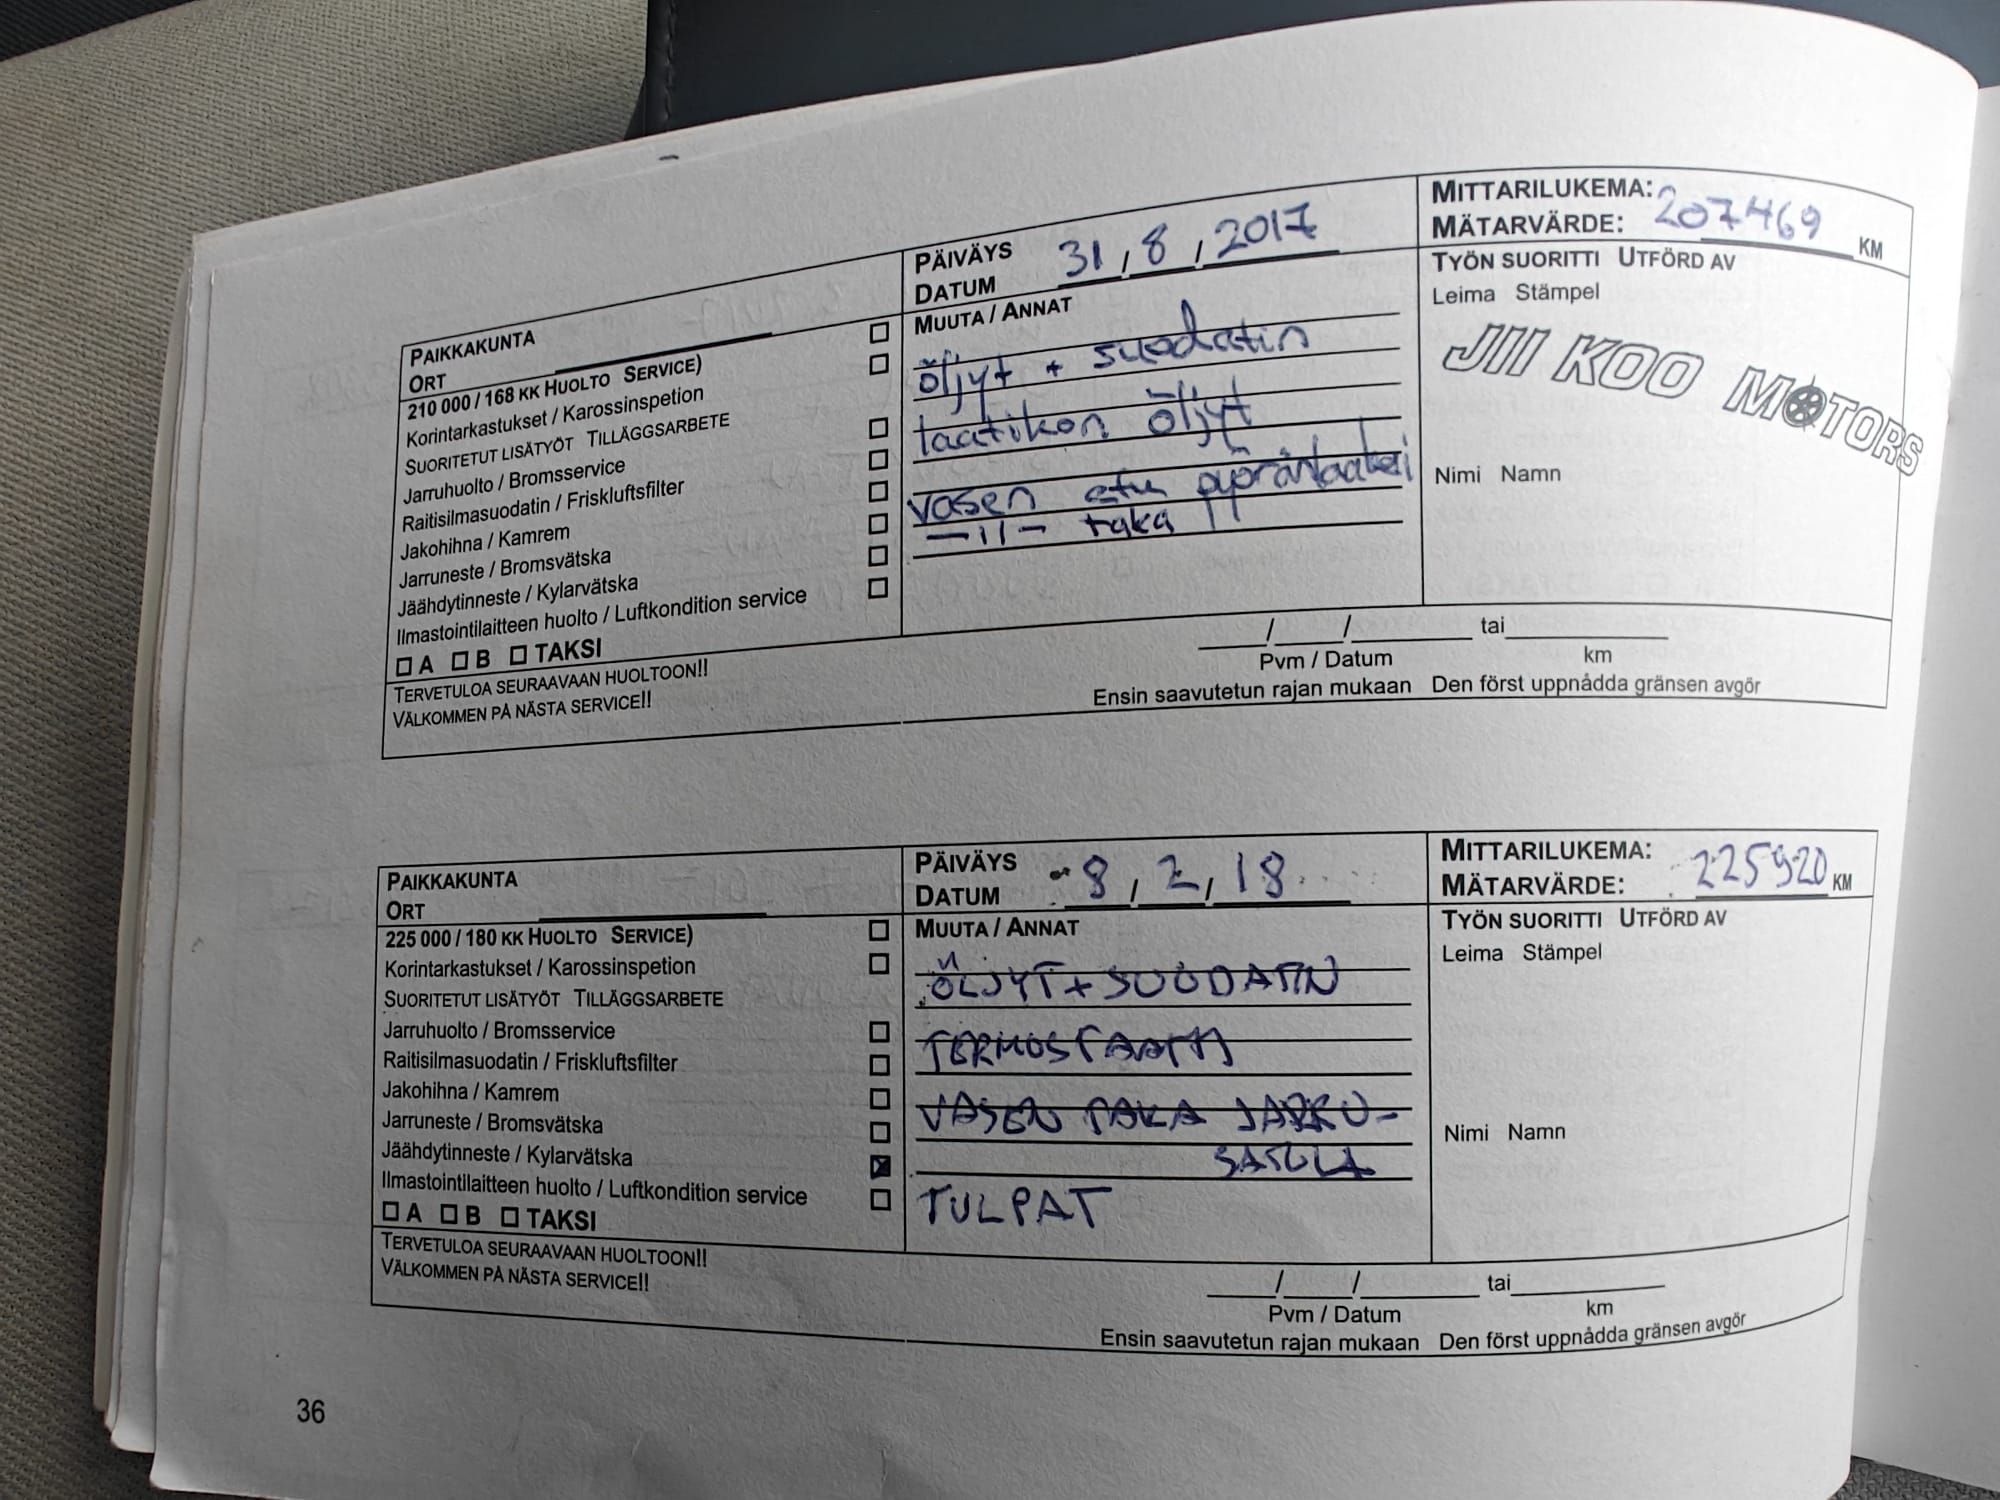 PAIKKAKUNTA
ORT
PÄIVÄYS
DATUM 31 / 8 / 2017
MITTARILUKEMA:
MÄTARVÄRDE: 207469 KM
210 000 / 168 KK HUOLTO SERVICE)
Korintarkastukset / Karossinspetion
SUORITETUT LISÄTYÖT TILLÄGGSARBETE
Jarruhuolto / Bromsservice
Raitisilmasuodatin / Friskluftsfilter
Jakohihna / Kamrem
Jarruneste / Bromsvätska
Jäähdytinneste / Kylarvätska
Ilmastointilaitteen huolto / Luftkondition service
A B TAKSI
MUUTA / ANNAT
öljyt + suodatin
laatikon öljyt
vasen etu pyöränlaakeri
-11- taka
TYÖN SUORITTI UTFÖRD AV
Leima Stämpel
JII KOO MOTORS
Nimi Namn
TERVETULOA SEURAAVAAN HUOLTOON!!
VÄLKOMMEN PÅ NÄSTA SERVICE!!
/ / tai
Pvm / Datum km
Ensin saavutetun rajan mukaan Den först uppnådda gränsen avgör
PAIKKAKUNTA
ORT
PÄIVÄYS
DATUM 8 / 2 / 18
MITTARILUKEMA:
MÄTARVÄRDE: 225920 KM
225 000 / 180 KK HUOLTO SERVICE)
Korintarkastukset / Karossinspetion
SUORITETUT LISÄTYÖT TILLÄGGSARBETE
Jarruhuolto / Bromsservice
Raitisilmasuodatin / Friskluftsfilter
Jakohihna / Kamrem
Jarruneste / Bromsvätska
Jäähdytinneste / Kylarvätska
Ilmastointilaitteen huolto / Luftkondition service
A B TAKSI
MUUTA / ANNAT
ÖLJYT + SUODATIN
TERMOSTAATTI
VASEN TAKA JARRU-
SATULA
TULPAT
TYÖN SUORITTI UTFÖRD AV
Leima Stämpel
Nimi Namn
TERVETULOA SEURAAVAAN HUOLTOON!!
VÄLKOMMEN PÅ NÄSTA SERVICE!!
/ / tai
Pvm / Datum km
Ensin saavutetun rajan mukaan Den först uppnådda gränsen avgör
36